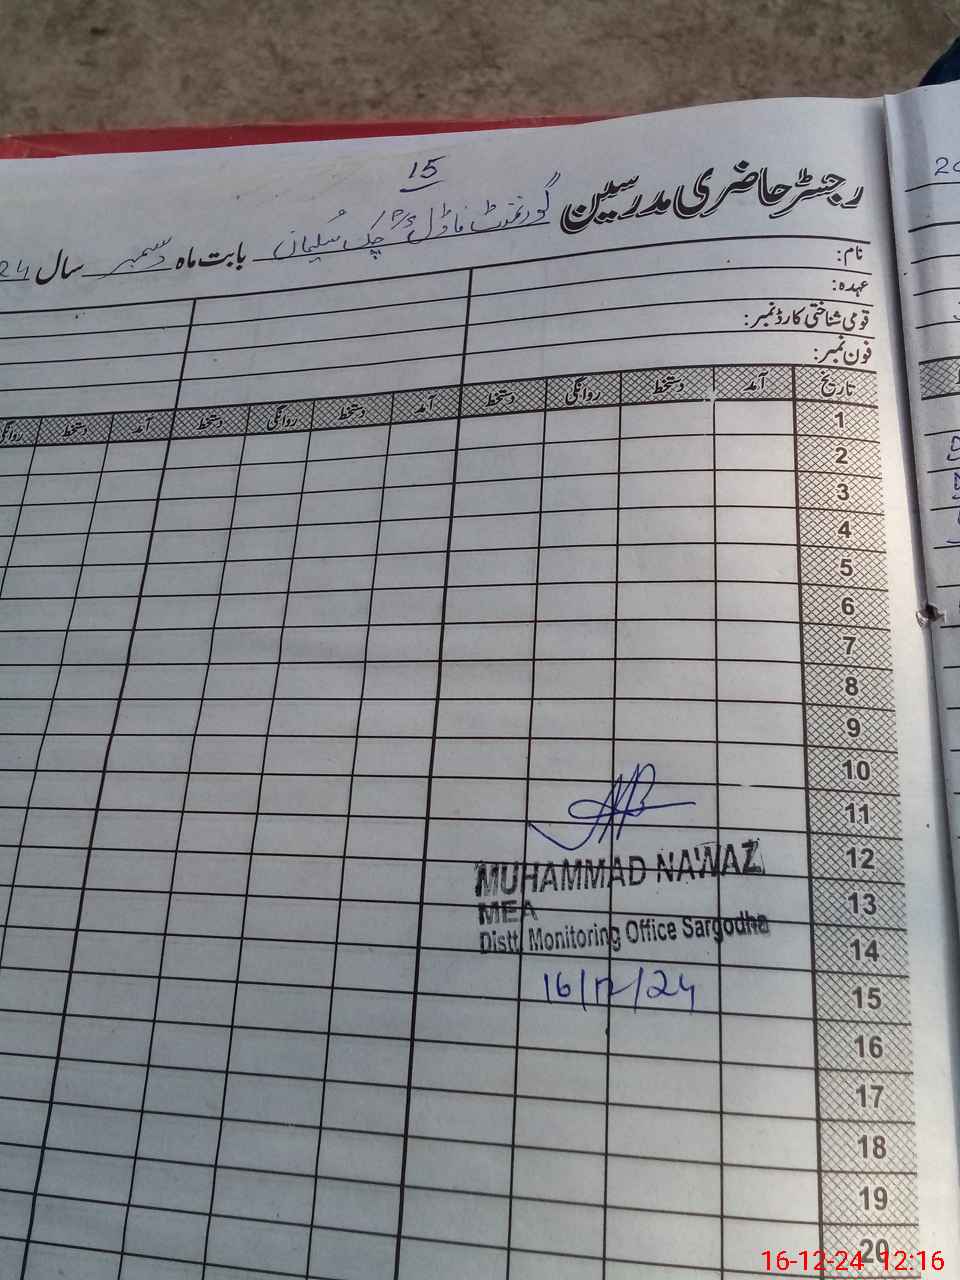 15
رجسٹر حاضری مدرسین گورنمنٹ ماڈل چک سلیمان بابت ماہ دسمبر سال 24
نام:
عہدہ:
قومی شناختی کارڈ نمبر:
فون نمبر:
تاریخ آمد دستخط روانگی دستخط آمد دستخط روانگی دستخط آمد دستخط روانگی
1
2
3
4
5
6
7
8
9
10
11
12
13
14
15
16
17
18
19
20
MUHAMMAD NAWAZ
MEA
Distt. Monitoring Office Sargodha
16/12/24
16-12-24 12:16